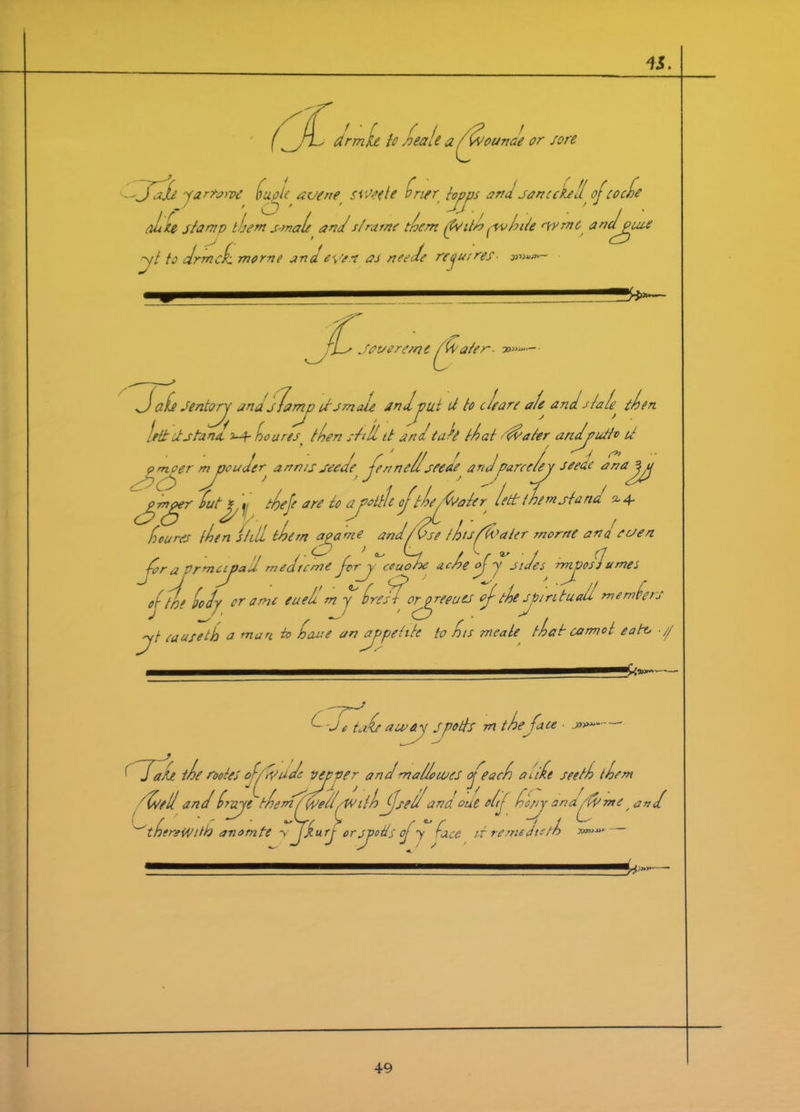 45.
A drinke to heale a Wounde or sore
Take yarrowe bugle avene sweete brier topps and sanickell of eache
alike stamp them smale and straine them With white wine and giue
yt to drinck morne and even as neede requires.
A souereine Water.
Take sentory and stamp it smale and put it to cleare ale and stale then
lett it stand 24 houres then still it and take that Water and putto it
ginger in pouder annis seede fennell seede and parceley seede ana ʒij
ginger but ʒ ij these are to a pottle of the Water lett them stand 24
houres then still them againe and Vse this Water morne and even
for a principall medicine for yͤ ache of yͤ sides imposiumes
of the body or anie euell in yͤ brest or greeues of the spirituall members
yt causeth a man to haue an appetite to his meate that cannot eate. //
To take away spotts in the face.
Take the rootes of Wilde pepper and mallowes of each alike seeth them
Well and braye them Well With and oile olif hony and Wine, and
thereWith anointe yͤ skurf or spotts of yͤ face it remedieth
49